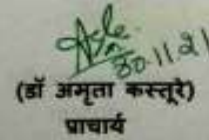 30.11.21
(डॉ अमृता कस्तूरे)
प्राचार्य